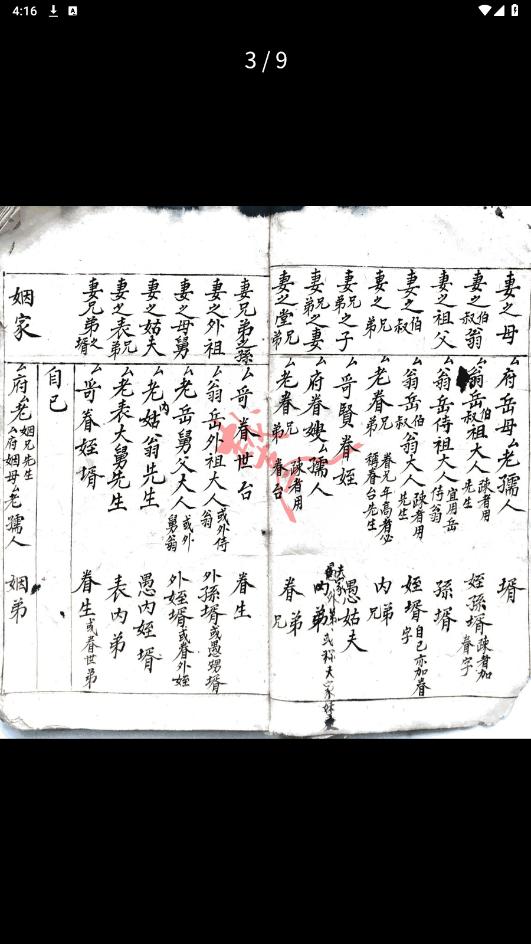 4:16
3/9
妻之母
ㄙ府岳母ㄙ老孺人
壻
妻之伯叔翁
ㄙ翁岳伯叔祖大人 疎者用先生
姪孫壻 疎者加眷字
妻之祖父
ㄙ翁岳侍祖大人 宜用岳侍翁
孫壻
妻之伯叔
ㄙ翁岳伯叔翁大人 疎者用先生
姪壻 自己亦加眷字
妻之兄弟
ㄙ老眷兄弟 眷兄年高者必稱眷台先生
内兄弟
妻兄弟之子
ㄙ哥賢眷姪
愚姑夫
妻兄弟之妻
ㄙ府眷嫂ㄙ孺人
妻之堂兄弟
ㄙ老眷兄弟 疎者用眷台
眷弟兄
妻兄弟之孫
ㄙ哥眷世台
眷生
妻之外祖
ㄙ翁岳外祖大人 或外侍翁
外孫壻 或愚甥壻
妻之母舅
ㄙ老岳舅父大人 或外舅翁
外姪壻 或眷外姪
妻之姑夫
ㄙ老内姑翁先生
愚内姪壻
妻之表兄弟
ㄙ老表大舅先生
表内弟
妻兄弟之壻
ㄙ哥眷姪壻
眷生 或眷世弟
自己
姻家
ㄙ府ㄙ老姻兄先生
ㄙ府姻母ㄙ老孺人
姻弟